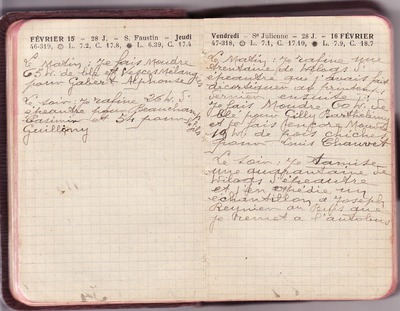 FÉVRIER 15 - 28 J. - S. Faustin - Jeudi
46-319, L. 7.2, C. 17.8, L. 6.39, C. 17.4
Le Matin ; je fais Moudre
65 K. de blé et Mélange
pour Galiert Alphonse
Le Soir ; je rafine 20 K. d'
épeautre pour Beauchamp
Casimir et 5 K pour
Guillony
Vendredi - Ste Julienne - 28 J. - 16 FÉVRIER
47-318, L. 7.1, C. 17.10, L. 7.9, C. 18.7
Le Matin ; je rafine une
trentaine de kilogs d'
épeautre que j'avais fait
décortiquer au
dernier ensuite
je fais Moudre 60 K. de
blé pour Gilly Barthélemy
et je fais Moudre
19 K. de pois chiches
pour Louis Chauvet
Le Soir ; je tamise
une quarantaine de
kilogs d'épeautre
et j'en expédie un
échantillon à Joseph
Reynier au que
je remet à l'autobus